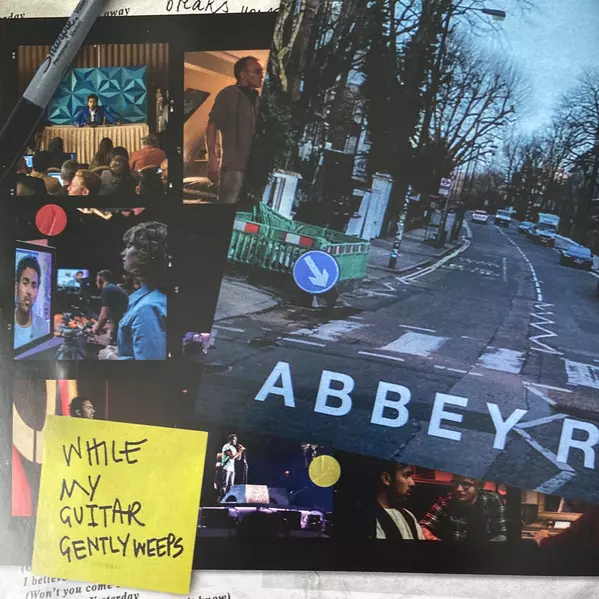 away breaks
ABBEY R
WHILE
MY
GUITAR
GENTLY WEEPS
I believe
(Won't you come
Yesterday know)